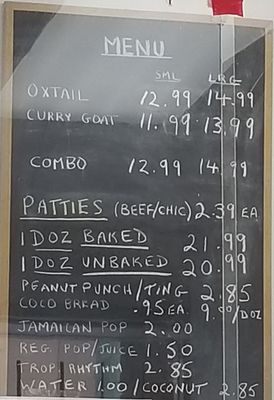 MENU
SML LRG
OXTAIL 12.99 14.99
CURRY GOAT 11.99 13.99
COMBO 12.99 14.99
PATTIES (BEEF/CHIC) 2.39 EA
1 DOZ BAKED 21.99
1 DOZ UNBAKED 20.99
PEANUT PUNCH/TING 2.85
COCO BREAD .95 EA. /DOZ
JAMAICAN POP 2.00
REG. POP/JUICE 1.50
TROP. RHYTHM 2.85
WATER 1.00/COCONUT 2.85